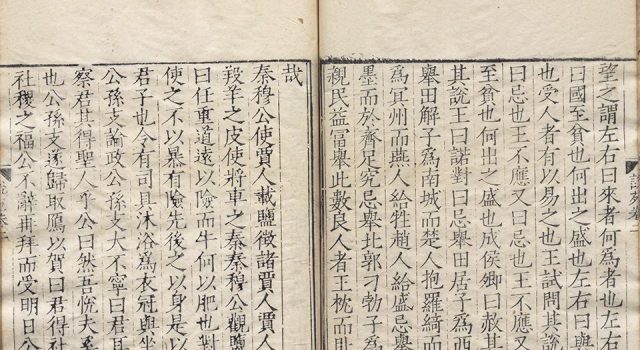 望之謂左右曰來者何爲者也左右
曰國至貧也何出之盛也左右曰與
也受人者有以易之也王試問其說
曰忌也王不應又曰忌也王不應又
至貧也何出之盛也成侯卿曰赦其
其說王曰諾對曰忌舉田居子爲西
舉田解子爲南城而楚人抱羅綺而
爲冥州而燕人給牲趙人給盛忌
墨而於齊足究忌舉北郭刁勃子爲
親民益冨舉此數良人者王枕而
哉
秦穆公使賈人載鹽徵諸賈人賈人
羖羊之皮使將車之秦秦穆公觀鹽
曰任重道遠以險而牛何以肥也對
使之不以暴有險先後之以身是以
君子也令有司具沐浴爲衣冠與坐
公孫支論政公孫支大不寧曰君耳
察君其得聖人乎公曰然吾悅夫奚
也公孫支遂歸取鴈以賀曰君得社
社稷之福公不辭再拜而受明日公